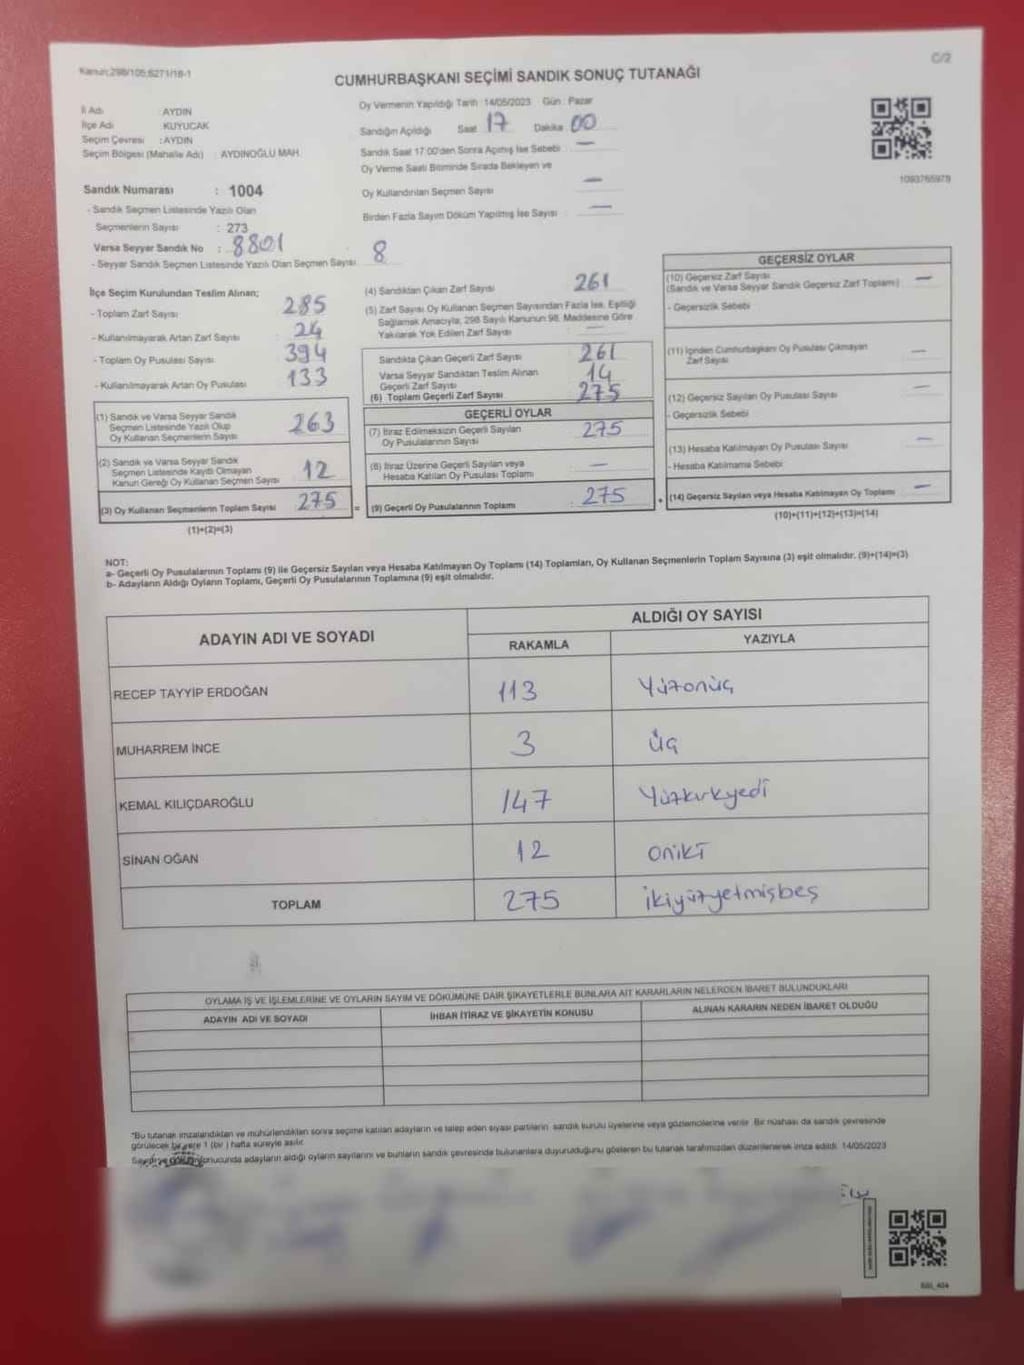 Kanun:298/105,6271/18-1
C/2
CUMHURBAŞKANI SEÇİMİ SANDIK SONUÇ TUTANAĞI
İl Adı : AYDIN
İlçe Adı : KUYUCAK
Seçim Çevresi : AYDIN
Seçim Bölgesi (Mahalle Adı) : AYDINOĞLU MAH.
Sandık Numarası : 1004
- Sandık Seçmen Listesinde Yazılı Olan
Seçmenlerin Sayısı : 273
Varsa Seyyar Sandık No : 8801
- Seyyar Sandık Seçmen Listesinde Yazılı Olan Seçmen Sayısı 8
Oy Vermenin Yapıldığı Tarih 14/05/2023 Gün : Pazar
Sandığın Açıldığı Saat 17 Dakika 00
Sandık Saat 17:00'den Sonra Açılmış İse Sebebi —
Oy Verme Saati Bitiminde Sırada Bekleyen ve
Oy Kullandırılan Seçmen Sayısı —
Birden Fazla Sayım Döküm Yapılmış İse Sayısı —
1093765978
İlçe Seçim Kurulundan Teslim Alınan;
- Toplam Zarf Sayısı 285
- Kullanılmayarak Artan Zarf Sayısı 24
- Toplam Oy Pusulası Sayısı 394
- Kullanılmayarak Artan Oy Pusulası 133
(1) Sandık ve Varsa Seyyar Sandık
Seçmen Listesinde Yazılı Olup
Oy Kullanan Seçmenlerin Sayısı 263
(2) Sandık ve Varsa Seyyar Sandık
Seçmen Listesinde Kayıtlı Olmayan
Kanun Gereği Oy Kullanan Seçmen Sayısı 12
(3) Oy Kullanan Seçmenlerin Toplam Sayısı 275
(1)+(2)=(3)
(4) Sandıktan Çıkan Zarf Sayısı 261
(5) Zarf Sayısı Oy Kullanan Seçmen Sayısından Fazla İse, Eşitliği
Sağlamak Amacıyla, 298 Sayılı Kanunun 98. Maddesine Göre
Yakılarak Yok Edilen Zarf Sayısı —
Sandıkta Çıkan Geçerli Zarf Sayısı 261
Varsa Seyyar Sandıktan Teslim Alınan
Geçerli Zarf Sayısı 14
(6) Toplam Geçerli Zarf Sayısı 275
GEÇERLİ OYLAR
(7) İtiraz Edilmeksizin Geçerli Sayılan
Oy Pusulalarının Sayısı 275
(8) İtiraz Üzerine Geçerli Sayılan veya
Hesaba Katılan Oy Pusulası Toplamı —
= (9) Geçerli Oy Pusulalarının Toplamı 275
GEÇERSİZ OYLAR
(10) Geçersiz Zarf Sayısı —
(Sandık ve Varsa Seyyar Sandık Geçersiz Zarf Toplamı)
- Geçersizlik Sebebi
(11) İçinden Cumhurbaşkanı Oy Pusulası Çıkmayan
Zarf Sayısı —
(12) Geçersiz Sayılan Oy Pusulası Sayısı —
- Geçersizlik Sebebi
(13) Hesaba Katılmayan Oy Pusulası Sayısı —
- Hesaba Katılmama Sebebi
+ (14) Geçersiz Sayılan veya Hesaba Katılmayan Oy Toplamı —
(10)+(11)+(12)+(13)=(14)
NOT:
a- Geçerli Oy Pusulalarının Toplamı (9) ile Geçersiz Sayılan veya Hesaba Katılmayan Oy Toplamı (14) Toplamları, Oy Kullanan Seçmenlerin Toplam Sayısına (3) eşit olmalıdır. (9)+(14)=(3)
b- Adayların Aldığı Oyların Toplamı, Geçerli Oy Pusulalarının Toplamına (9) eşit olmalıdır.
ADAYIN ADI VE SOYADI
ALDIĞI OY SAYISI
RAKAMLA YAZIYLA
RECEP TAYYİP ERDOĞAN 113 Yüzonüç
MUHARREM İNCE 3 üç
KEMAL KILIÇDAROĞLU 147 Yüzkırkyedi
SİNAN OĞAN 12 oniki
TOPLAM 275 ikiyüzyetmişbeş
OYLAMA İŞ VE İŞLEMLERİNE VE OYLARIN SAYIM VE DÖKÜMÜNE DAİR ŞİKAYETLERLE BUNLARA AİT KARARLARIN NELERDEN İBARET BULUNDUKLARI
ADAYIN ADI VE SOYADI İHBAR İTİRAZ VE ŞİKAYETİN KONUSU ALINAN KARARIN NEDEN İBARET OLDUĞU
*Bu tutanak imzalandıktan ve mühürlendikten sonra seçime katılan adayların ve talep eden siyasi partilerin sandık kurulu üyelerine veya gözlemcilerine verilir. Bir nüshası da sandık çevresinde
görülecek bir yere 1 (bir) hafta süreyle asılır.
Sayım ve döküm sonucunda adayların aldığı oyların sayılarını ve bunların sandık çevresinde bulunanlara duyurulduğunu gösteren bu tutanak tarafımızdan düzenlenerek imza edildi. 14/05/2023